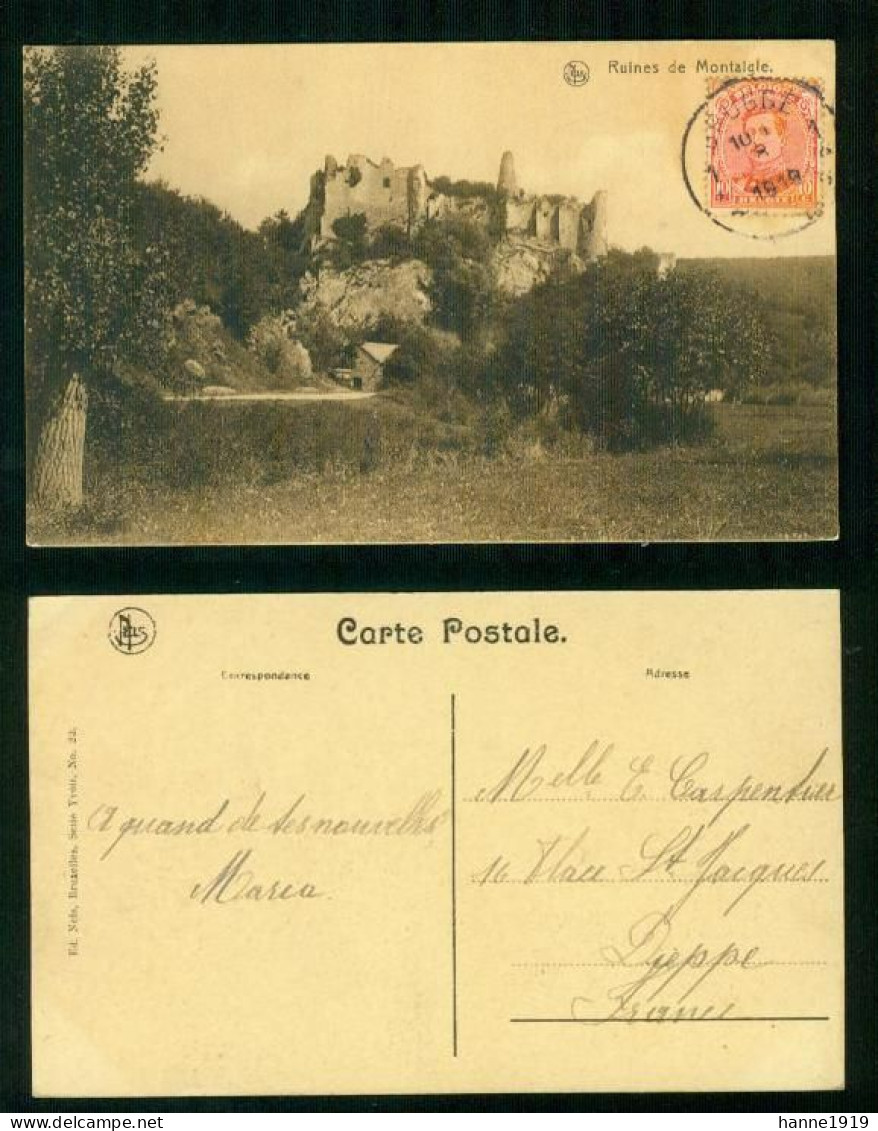 Nels
Ruines de Montaigle.
BRUGGE
1919
10 10
Nels
Carte Postale.
Correspondance
Adresse
Ed. Nels, Bruxelles. Serie Yvoir, No. 23.
A quand de tes nouvelles
Maria
Melle E. Carpentier
16 Place St Jacques
Dieppe
France
hanne1919